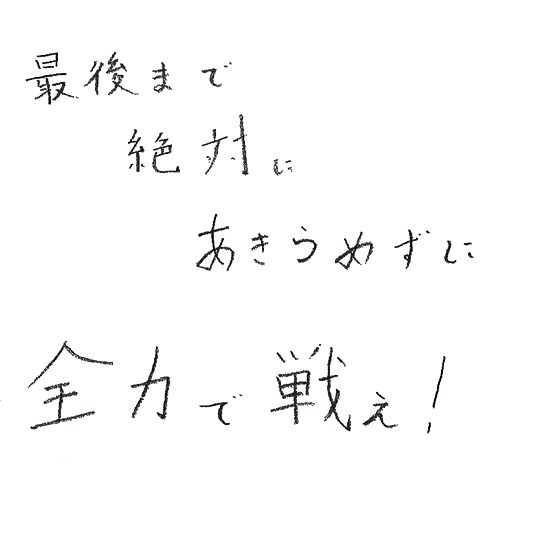 最後まで
絶対に
あきらめずに
全力で戦え!